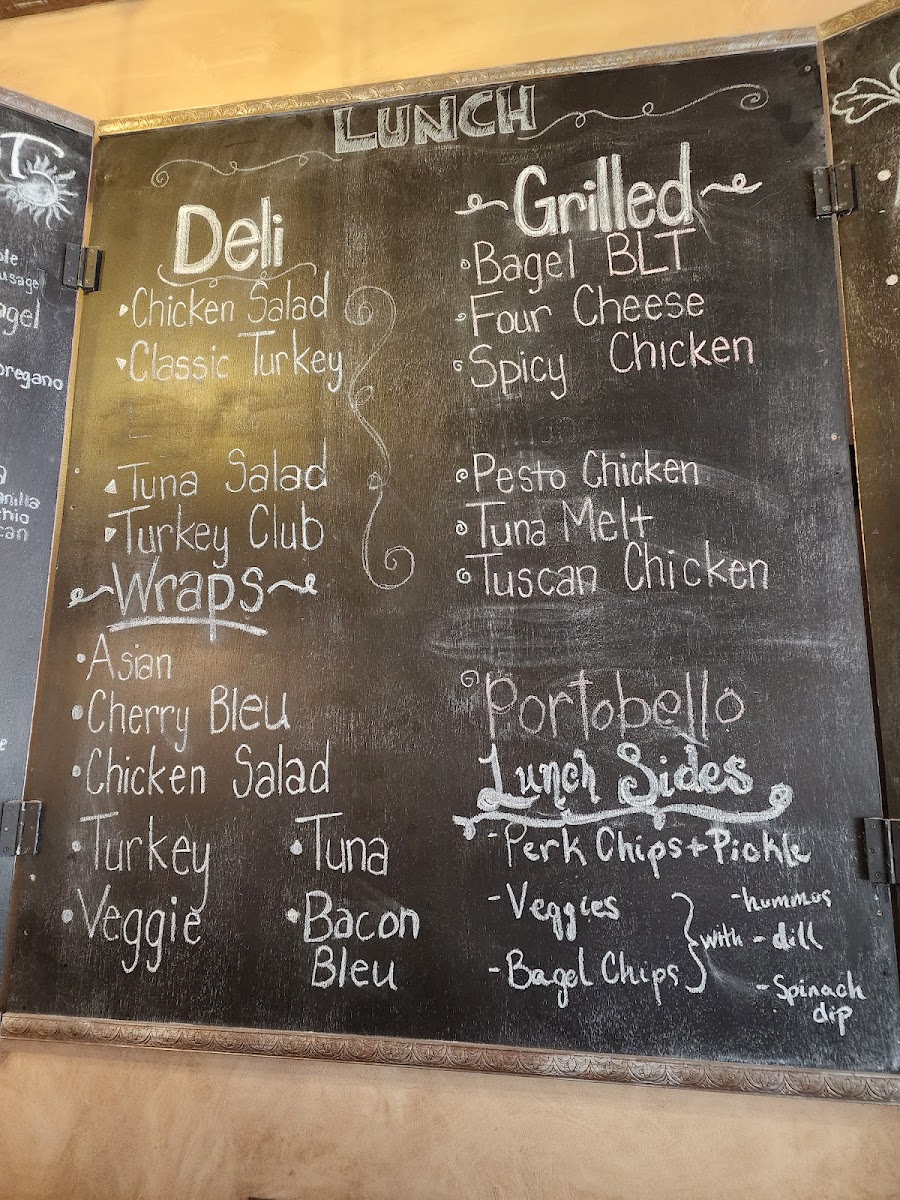 LUNCH
Deli
Chicken Salad
Classic Turkey
Tuna Salad
Turkey Club
Wraps
Asian
Cherry Bleu
Chicken Salad
Turkey
Veggie
Tuna
Bacon
Bleu
Grilled
Bagel BLT
Four Cheese
Spicy Chicken
Pesto Chicken
Tuna Melt
Tuscan Chicken
Portobello
Lunch Sides
- Perk Chips + Pickle
- Veggies
- Bagel Chips
with
- hummus
- dill
- Spinach
dip
oregano